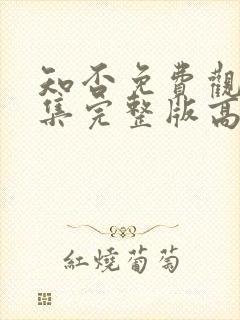 知否免費觀
集完整版高
紅燒葡萄